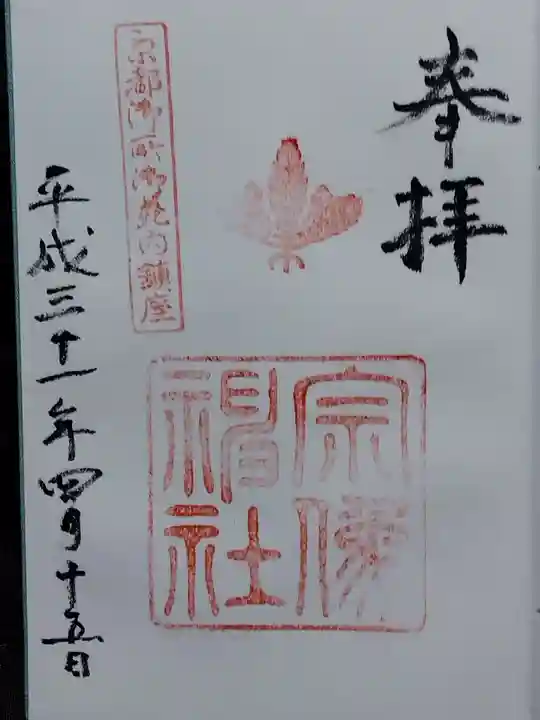 奉拝
京都御所御苑内鎮座
宗像神社
平成三十一年四月十五日